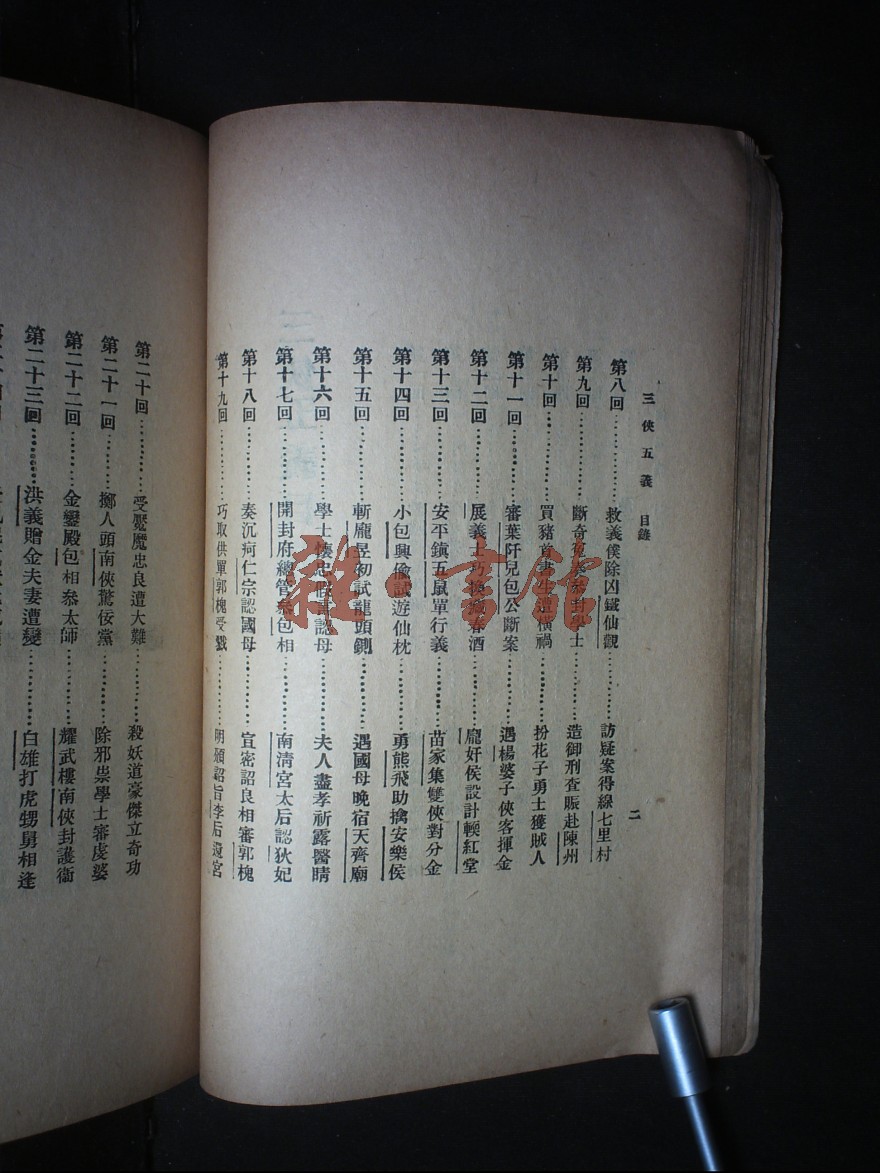 三俠五義 目錄
二
第八回…………救義僕除凶鐵仙觀…………訪疑案得線七里村
第九回…………斷奇冤奏參封學士…………造御刑查賑赴陳州
第十回…………買豬首書生遭橫禍…………扮花子勇士獲賊人
第十一回…………審葉阡兒包公斷案…………遇楊婆子俠客揮金
第十二回…………展義士巧換藏春酒…………龐奸侯設計輭紅堂
第十三回…………安平鎮五鼠單行義…………苗家集雙俠對分金
第十四回…………小包興偷試遊仙枕…………勇熊飛助擒安樂侯
第十五回…………斬龐昱初試龍頭鍘…………遇國母晚宿天齊廟
第十六回…………學士懷忠假言認母…………夫人盡孝祈露醫睛
第十七回…………開封府總管參包相…………南清宮太后認狄妃
第十八回…………奏沉疴仁宗認國母…………宣密詔良相審郭槐
第十九回…………巧取供單郭槐受戮…………明頒詔旨李后還宮
第二十回…………受魘魔忠良遭大難…………殺妖道豪傑立奇功
第二十一回…………擲人頭南俠驚佞黨…………除邪祟學士審虔婆
第二十二回…………金鑾殿包相參太師…………耀武樓南俠封護衛
第二十三回…………洪義贈金夫妻遭變…………白雄打虎甥舅相逢
雜·書館